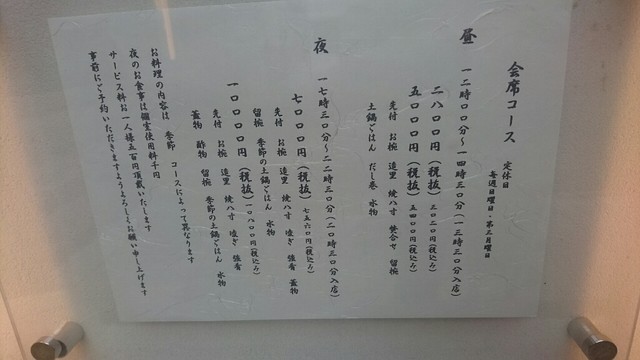 会席コース
定休日
毎週日曜日・第三月曜日
昼
一二時〇〇分〜一四時三〇分(一三時三〇分入店)
二八〇〇円(税抜)三〇二〇円(税込み)
五〇〇〇円(税抜)五四〇〇円(税込み)
先付 お椀 造里 焼八寸 焚合せ 留椀
土鍋ごはん だし巻 水物
夜
一七時三〇分〜二二時三〇分(二〇時三〇分入店)
七〇〇〇円(税抜)七五六〇円(税込み)
先付 お椀 造里 焼八寸 凌ぎ 強肴 蓋物
留椀 季節の土鍋ごはん 水物
一〇〇〇〇円(税抜)一〇八〇〇円(税込み)
先付 お椀 造里 焼八寸 凌ぎ 強肴
蓋物 酢物 留椀 季節の土鍋ごはん 水物
お料理の内容は 季節 コースによって異なります
夜のお食事は個室使用料千円
サービス料お一人様五百円頂戴いたします
事前にご予約いただきますようよろしくお願い申し上げます